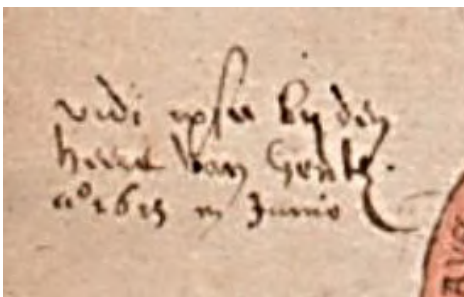 vidi ipse by den
heere van Gent
aº 1615 in Junio